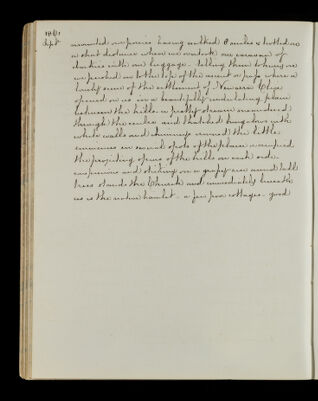 Sept
mounted our ponies having walked 8 miles & trotted on
a short distance when we overtook our caravan of
dookies with our luggage - telling them to hurry on
we pushed on to the top of the mount or pass where a
lovely scene of the settlement of Newera Ellya
opened on us in a beautifully undulating plain
between the hills - a pretty stream meandered
through the centre and thatched bungalows with
white walls and chimneys crowned the little
eminences in several spots of the plain or occupied
the projecting spurs of the hills on each side.
conspicuous and striking on a grassy
trees stands the Church and immediately beneath
us is the native hamlet - a few poor cottages - good